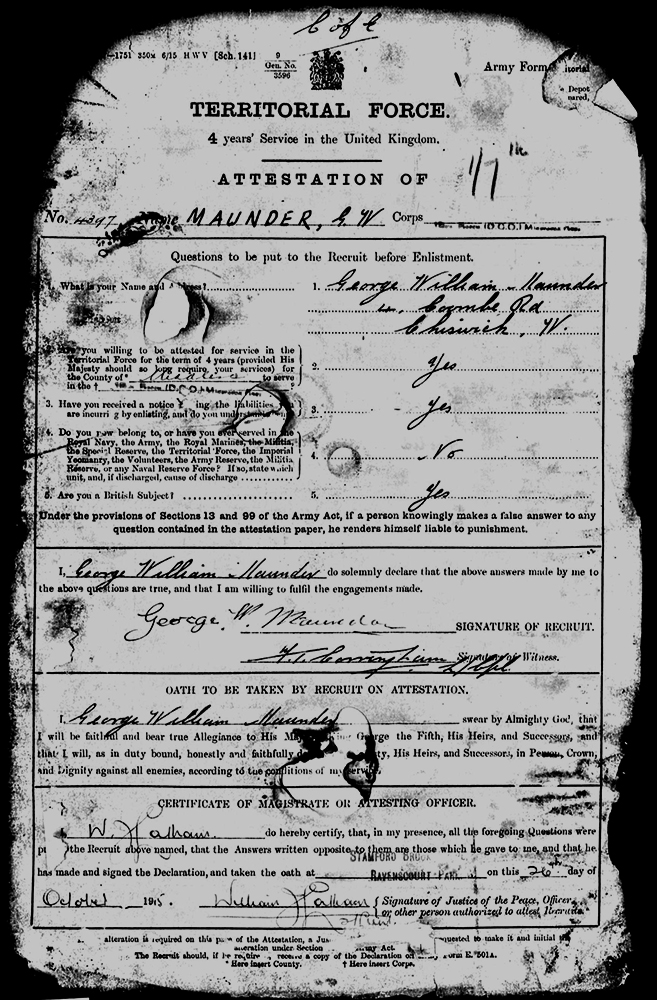 C of E
1751 350M 6/15 H W V [Sch. 141]
9
Gen. No.
3596
Army Form
Depot
TERRITORIAL FORCE.
4 years' Service in the United Kingdom.
ATTESTATION OF
1/7th
No. 4397 Name MAUNDER, G. W Corps
Questions to be put to the Recruit before Enlistment.
1. What is your Name and Address?
1. George William Maunder
4, Coombe Rd
Chiswick, W.
Are you willing to be attested for service in the
Territorial Force for the term of 4 years (provided His
Majesty should so long require your services) for
the County of * to serve
in the †
2. Yes
3. Have you received a notice ing the liabilities
are incurri g by enlisting, and do you understand
3. Yes
4. Do you now belong to, or have you ever served in the
Royal Navy, the Army, the Royal Marines, the Militia,
the Special Reserve, the Territorial Force, the Imperial
Yeomanry, the Volunteers, the Army Reserve, the Militia
Reserve, or any Naval Reserve Force? If so, state which
unit, and, if discharged, cause of discharge
4. No
5. Are you a British Subject?
5. Yes
Under the provisions of Sections 13 and 99 of the Army Act, if a person knowingly makes a false answer to any
question contained in the attestation paper, he renders himself liable to punishment.
I, George William Maunder do solemnly declare that the above answers made by me to
the above questions are true, and that I am willing to fulfil the engagements made.
George W. Maunder SIGNATURE OF RECRUIT.
Signature of Witness.
OATH TO BE TAKEN BY RECRUIT ON ATTESTATION.
I, George William Maunder swear by Almighty God, that
I will be faithful and bear true Allegiance to His George the Fifth, His Heirs, and Successors, and
that I will, as in duty bound, honestly and faithfully His Heirs, and Successors, in Person, Crown,
and Dignity against all enemies, according to the conditions of my service.
CERTIFICATE OF MAGISTRATE OR ATTESTING OFFICER.
I, W. do hereby certify, that, in my presence, all the foregoing Questions were
the Recruit above named, that the Answers written opposite to them are those which he gave to me, and that he
STAMFORD BROOK
has made and signed the Declaration, and taken the oath at RAVENSCOURT PARK on this 26th day of
October 1915. William
Signature of Justice of the Peace, Officer,
or other person authorized to attest Recruits.
alteration is required on this pa of the Attestation, a Jus quested to make it and initial
alteration under Section Army Act.
The Recruit should, if he require receive a copy of the Declaration on orm E. 501A.
* Here insert County. † Here insert Corps.